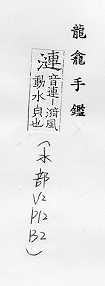 龍龕手鑑
漣 音連-漪風動水皃也
(水部V2P12B2)